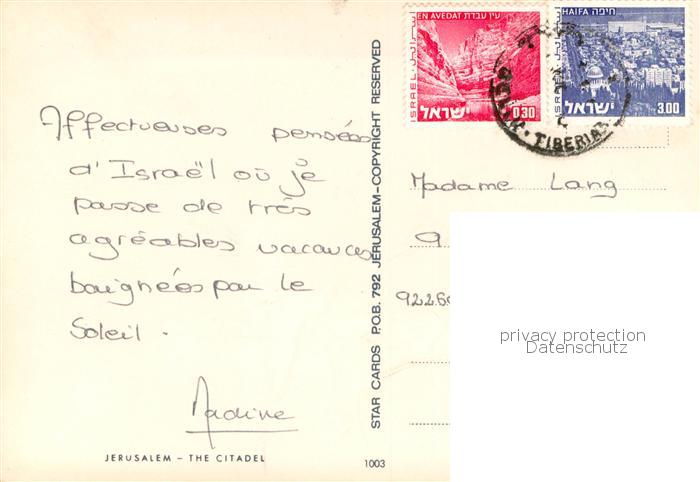 EN AVEDAT עין עבדת
ISRAEL
ישראל
0.30
HAIFA חיפה
ISRAEL
ישראל
3.00
TIBERIAS
Affectueuses pensées
d'Israël où je
passe de très
agréables vacances
baignées par le
Soleil.
Nadine
JERUSALEM – THE CITADEL
1003
STAR CARDS P.O.B. 792 JERUSALEM–COPYRIGHT RESERVED
Madame Lang
9
9226
privacy protection
Datenschutz